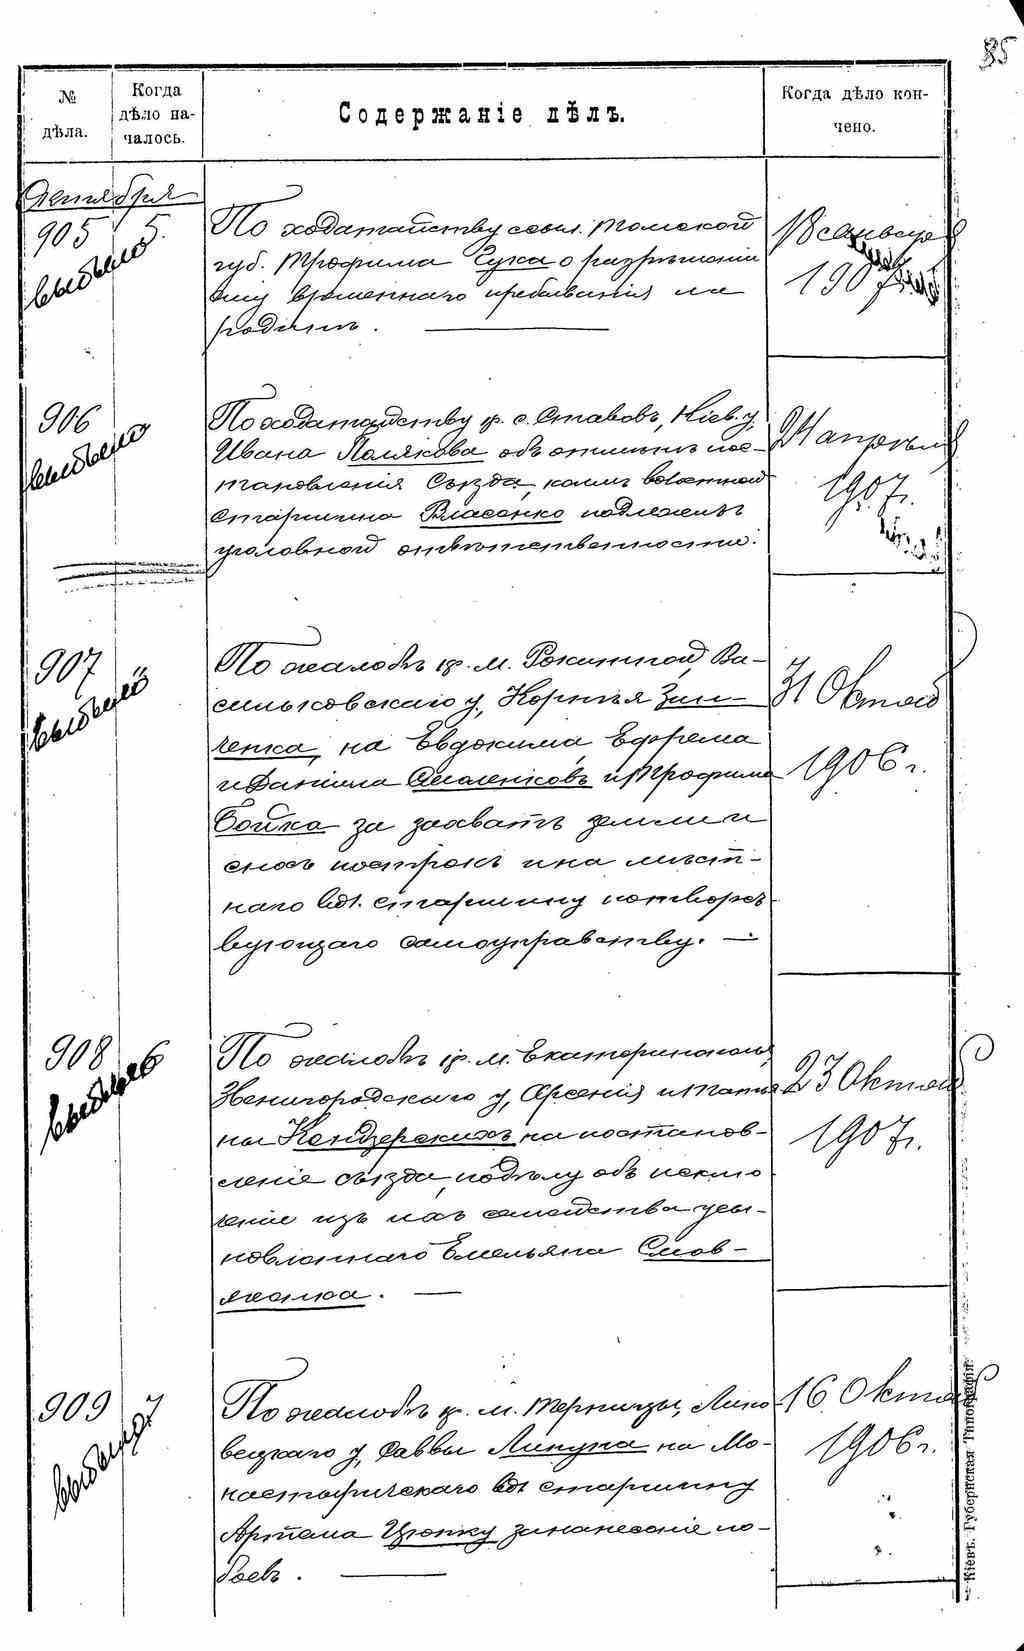 85
№
дѣла.
Когда
дѣло на-
чалось.
Содержаніе дѣлъ.
Когда дѣло кон-
чено.
Сентября
905
5.
выбыло
По ходатайству ссыл. Томской
губ. Трофима Сука о разрѣшеніи
ему временнаго пребыванія на
родинѣ.
18 января
1907
906
выбыло
По ходатайству кр. с. Ставовъ, Кіев. у.
Ивана Полякова объ отмѣнѣ пос-
тановленія Съѣзда, коимъ волостной
старшина Власенко подлежитъ
уголовной отвѣтственности.
24 апрѣля
1907 г.
907
выбыло
По жалобѣ кр. м. Рокитной, Ва-
сильковскаго у, Корнѣя Зин-
ченка, на Евдокима, Ефрема
и Даніила и Трофима
Бойка за захватъ земли и
сносъ построекъ и на мѣст-
наго вол. старшину потворс-
вующаго самоуправству. —
31 Октяб
1906 г.
908
6
По жалобѣ кр. м. Екатеринополя,
Звенигородскаго у, Арсенія и Татья
ны Кондзерскихъ на постанов-
леніе съѣзда, по дѣлу объ исклю
ченіи изъ ихъ семейства усы-
новленнаго Емельяна Слов-
23 Октяб
1907 г.
909
7
По жалобѣ кр. м. Терлицы, Липо
вецкаго у, Саввы на Мо-
настырискаго вол. старшину
Артема Цюпку за нанесеніе по-
боевъ.
16 Октяб
1906 г.
Кіевъ. Губернская Типографія.